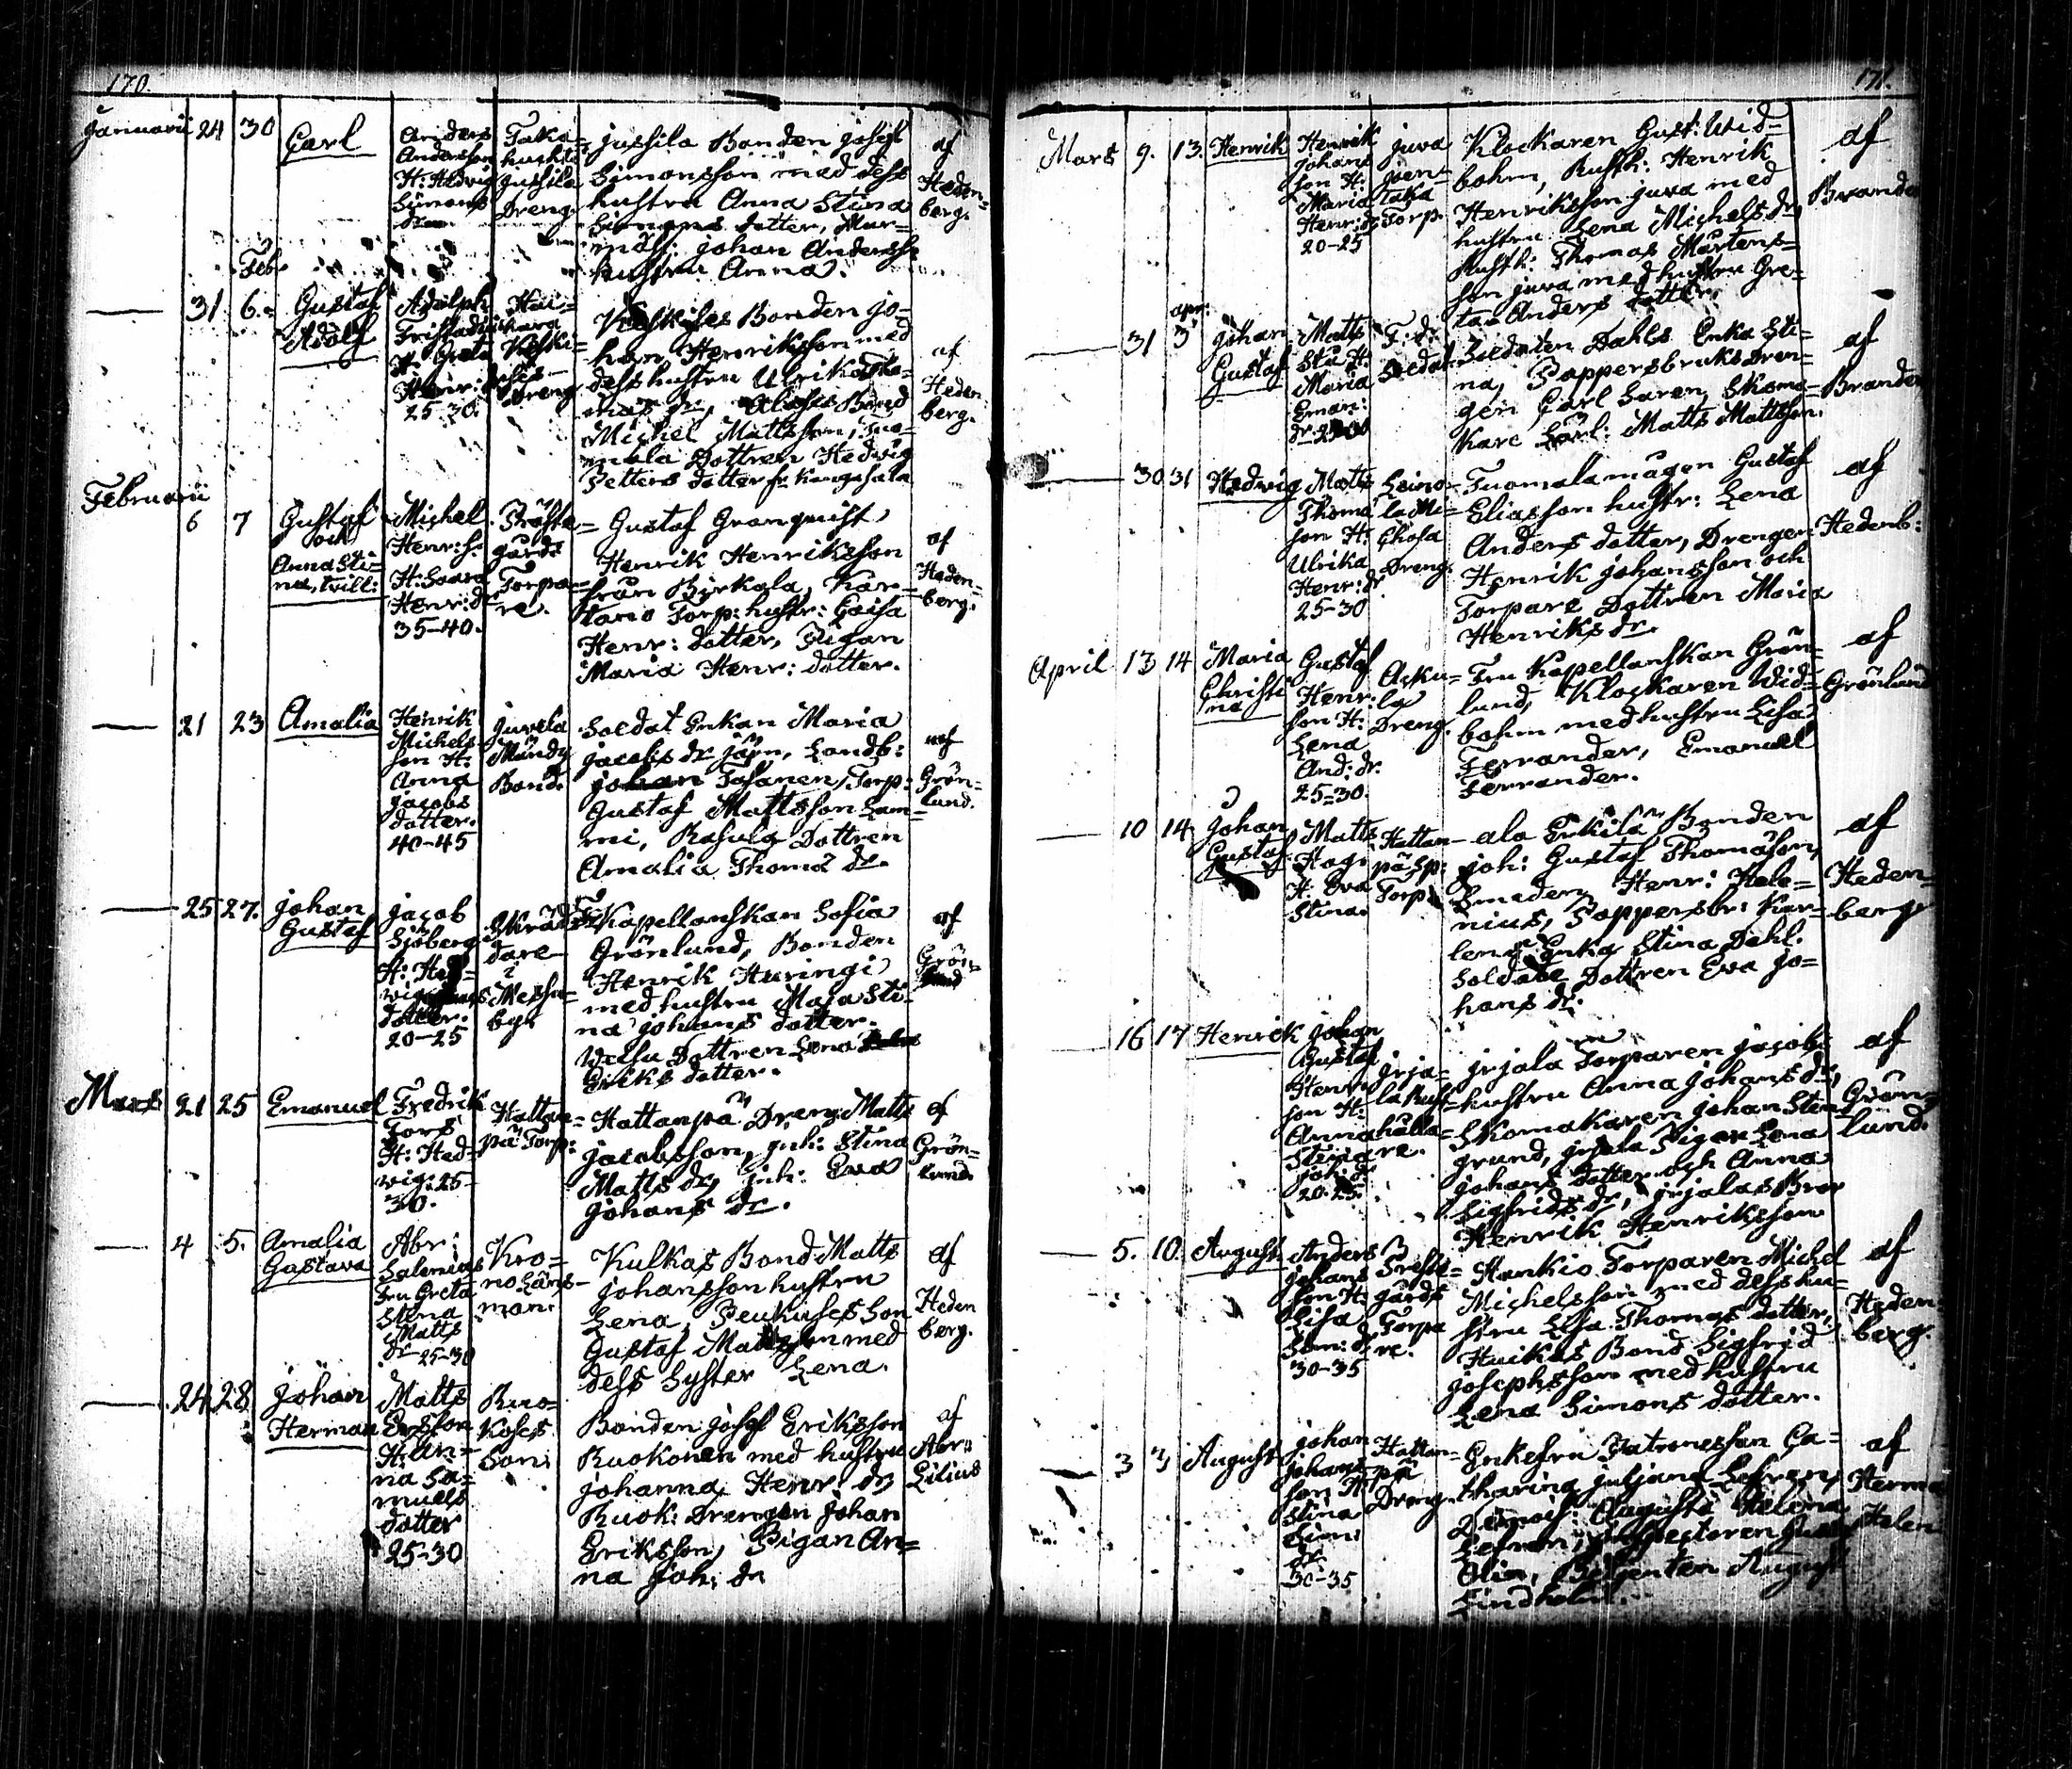 170.
Januarii 24 30 Carl
Anders
Andersson
H: Hedvig
Simons
dr.
Taka-
huchti
Jussila
Dreng.
Jussila Bonden Josef
Simonsson med dess
hustru Anna Stina
Simons dotter, Mur-
mäst: Johan Anderss:
hustru Anna.
af
Heden-
berg.
31 Feb. 6. Gustaf
Adolf
Adolph
H: Greta
Henr: dr
25-30.
Hau-
kara
Keski-
ses
Dreng
Bonden Jo-
han Henriksson med
dess hustru Ulrika Tho-
mas dr, Bond
Michel Mattsson, Tuo-
mala Dottren Hedvig
Petters dotter fr. Kangasala
af
Heden
berg.
Februarii
6 7 Gustaf
och
Anna Sti-
na, tvill:
Michel
Henr: s.
H: Saara
Henr: dr
35-40.
Präste-
gårds
Torpa-
re.
Gustaf Granquist
Henrik Henriksson
från Birkala, Kar-
tano Torp: hustr: Caisa
Henr: dotter, Pigan
Maria Henr: dotter.
af
Heden-
berg.
21 23 Amalia
Henrik
Michels
son H:
Anna
Jacobs
dotter.
40-45
Juvela
Mündy
Bond.
Soldat Enkan Maria
Jacobs dr Järn, Landb:
Johan Tofanen, Torp:
Gustaf Mattsson Lam-
mi, Rasula Dottren
Amalia Thoma dr
af
Grön-
lund.
25 27. Johan
Gustaf
Jacob
Sjöberg
H: Hed-
vig
dotter.
20-25
Skräd-
dare
i
Messu-
by.
Fr Kapellanskan Sofia
Grönlund, Bonden
Henrik Huringi
med hustru Maja Sti-
na Johans dotter.
Dottren Lena
Eriks dotter.
af
Grön-
lund
Mars 21 25 Emanuel
Fredrik
Fors
H: Hed-
vig: 25-
30.
Hattan-
pä Torp:
Hattanpä Dreng: Matts
Jacobsson, Inh: Stina
Matts dr, Inh: Eva
Johans dr.
af
Grön-
lund.
4 5. Amalia
Gustava
Abr:
Salenius
Fru Greta
Stina
Matts
dr 25-30
Kro-
no Läns-
man.
Kulkas Bond Matts
Johansson hustru
Lena, Peukuses Son
Gustaf Mattsson med
dess Syster Lena.
af
Heden
berg.
24 28 Johan
Herman
Matts
Ersson
H: An-
na Sa-
muels
dotter
25-30
Ruo-
koses
Son:
Bonden Josef Eriksson
Ruokonen med hustru
Johanna Henr: dr
Ruok: Drengen Johan
Eriksson, Pigan An-
na Joh: dr
af
Abr:
Lilius
171.
Mars 9. 13. Henrik
Henrik
Johans
son H:
Maria
Henr: dr
20-25
Juva
Joen-
Taka
Torp.
Klockaren Gust: Wid-
bohm, Rusth: Henrik
Henriksson Juva med
hustru Lena Michels dr,
Rusth: Thomas Mårtens-
son Juva med hustru Gre-
ta Anders dotter.
af
Brander
31 apr. 3 Johan
Gustaf
Matts
H:
Maria
Eman:
dr
F: dr
Soldat
Soldaten Dahls Enka Sti-
na, Pappersbruks Dren-
gen Carl Saren, Skoma-
kare Lärl: Matts Mattsson.
af
Brander
30 31 Hedvig
Matts
Thoma
son H:
Ulrika
Henr: dr.
25-30
Heino-
la Mi-
chola
Dreng.
Tuomala mågen Gustaf
Eliasson hustr: Lena
Anders dotter, Drengen
Henrik Johansson och
Torpare Dottren Maria
Henriks dr
af
Hedenb:
April 13 14 Maria
Christi
na
Gustaf
Henr:
son H:
Lena
And: dr.
25-30.
Acku-
la
Dreng.
Fru Kapellanskan Grön-
lund, Klockaren Wid-
bohm med hustru Lisa
Ferrander, Emanuel
Ferrander.
af
Grönlund
10 14 Johan
Gustaf
Matts
Hag:
H: Eva
Stina.
Hattan-
pä Sp:
Torp.
ala Erkilä Bonden
Joh: Gustaf Thomason,
Smeden Henr: Hele-
nius, Pappersbr: Kar-
lens Enka Stina Dahl.
Soldate Dottren Eva Jo-
hans dr.
af
Heden-
berg
16 17 Henrik
Johan
Gustaf
Henr:
son H:
Anna
Stina
Joh: dr
20-25.
Irja-
la Rust-
hålla-
re.
Irjala Torparen Jacobs
hustru Anna Johans dr,
Skomakaren Johan Sten-
grund, Irjala Pigan Lena
Johans dotter och Anna
Sigfrids dr, Irjalas Bror
Henrik Henriksson
af
Grön-
lund.
5. 10. August
Anders
Johans
son H:
Lisa
Sam: dr
30-35
Preste-
gårds
Torpa
re.
Hankio Torparen Michel
Michelsson med dess hu-
stru Lisa Thomas dotter,
Huikas Bond Sigfrid
Josephsson med hustru
Lena Simons dotter.
af
Heden
berg.
3 3 August
Johan
Johans
son H:
Stina
Sim:
dr
30-35
Hattan-
pä
Dreng.
Enkefru Patronessan Ca-
tharina Juliana Lefren,
Demois: Augusta Helena
Lefren, Inspectoren
Olin, Betjenten August
Lindholm.
af
Herm
Helen